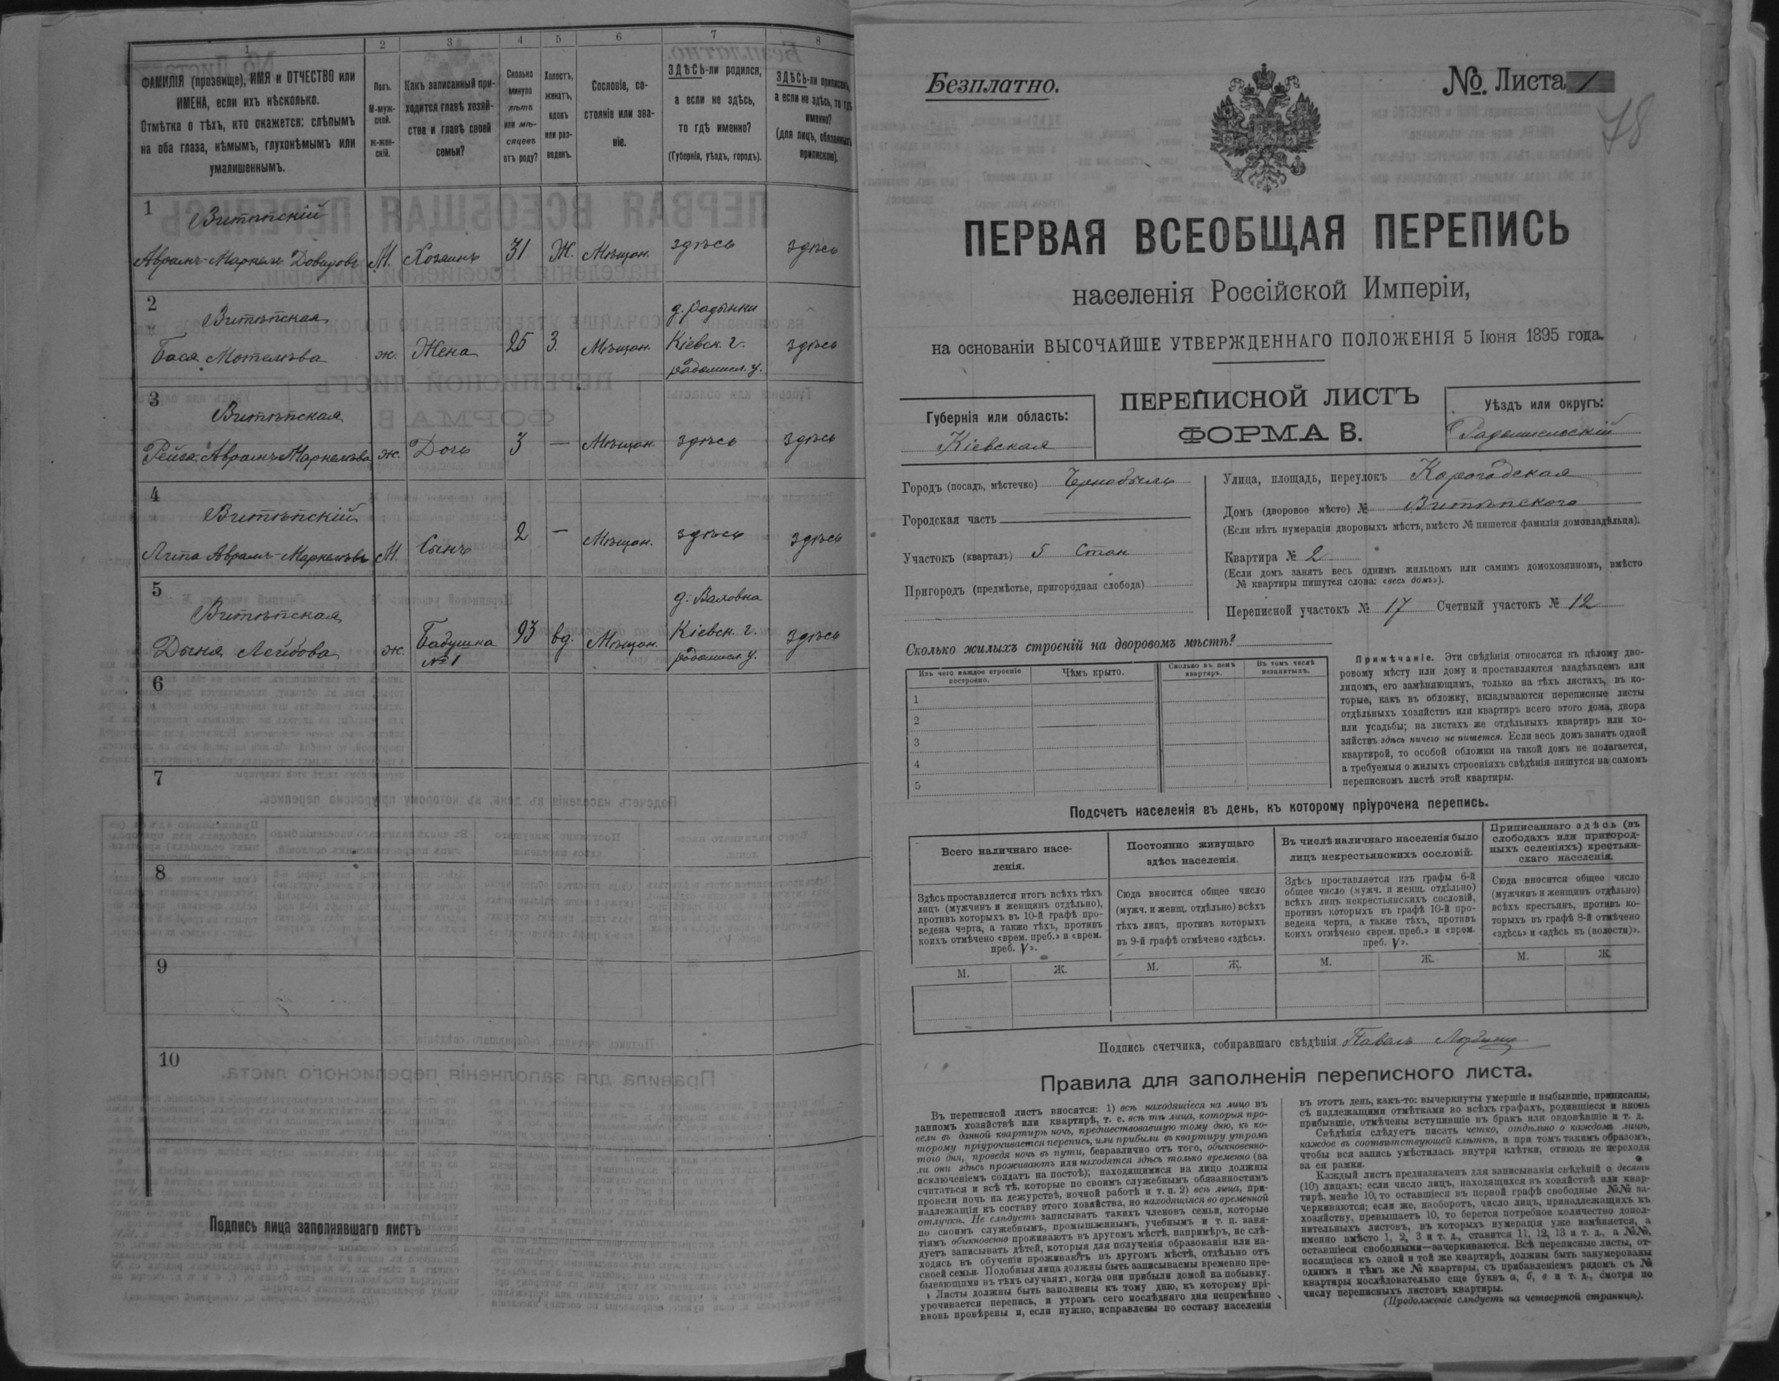 1 2 3 4 5 6 7 8
ФАМИЛІЯ (прозвище), ИМЯ и ОТЧЕСТВО или
ИМЕНА, если ихъ нѣсколько.
Отмѣтка о тѣхъ, кто окажется: слѣпымъ
на оба глаза, нѣмымъ, глухонѣмымъ или
умалишеннымъ.
Полъ.
М-муж-
ской.
Ж-жен-
скій.
Какъ записанный при-
ходится главѣ хозяй-
ства и главѣ своей
семьи?
Сколько
минуло
лѣтъ
или мѣ-
сяцевъ
отъ роду?
Холостъ,
женатъ,
вдовъ
или раз-
веденъ.
Сословіе, со-
стояніе или зва-
ніе.
ЗДѢСЬ-ли родился,
а если не здѣсь,
то гдѣ именно?
(Губернія, уѣздъ, городъ).
ЗДѢСЬ-ли приписанъ,
а если не здѣсь, то гдѣ
именно?
(для лицъ, обязанныхъ
припиской).
1
Витѣпскій
Аврамъ-Маркелъ Довидовъ М. Хозяинъ 31 Ж. Мѣщан. здѣсь здѣсь
2
Витѣпская
Бася Мотелѣва ж. Жена 25 З. Мѣщан. д. Радынки Кіевск. г. радомысл. у. здѣсь
3
Витѣпская
Рейза Аврамъ-Маркелѣва ж. Дочь 3 — Мѣщан. здѣсь здѣсь
4
Витѣпскій
Липа Аврамъ-Маркелѣвъ М. Сынъ 2 — Мѣщан. здѣсь здѣсь
5
Витѣпская
Дыня Лейбова ж. Бабушка №1 93 вд. Мѣщан. д.Валовка Кіевск. г. радомысл. у. здѣсь
6
7
8
9
10
Подпись лица заполнявшаго листъ
Безплатно.
№ Листа 1
78
ПЕРВАЯ ВСЕОБЩАЯ ПЕРЕПИСЬ
населенія Россійской Имперіи,
на основаніи ВЫСОЧАЙШЕ УТВЕРЖДЕННАГО ПОЛОЖЕНІЯ 5 Іюня 1895 года.
ПЕРЕПИСНОЙ ЛИСТЪ
ФОРМА В.
Губернія или область:
Кіевская
Уѣздъ или округъ:
Радомысльскій
Городъ (посадъ, мѣстечко) Чернобыль
Городская часть
Участокъ (кварталъ) 5 Стан
Пригородъ (предмѣстье, пригородная слобода)
Улица, площадь, переулокъ Корогодская
Домъ (дворовое мѣсто) № Витѣпского
(Если нѣтъ нумераціи дворовыхъ мѣстъ, вмѣсто № пишется фамилія домовладѣльца).
Квартира № 2
(Если домъ занятъ весь однимъ жильцомъ или самимъ домохозяиномъ, вмѣсто
№ квартиры пишутся слова: «весь домъ»).
Переписной участокъ № 17 Счетный участокъ № 12
Сколько жилыхъ строеній на дворовомъ мѣстѣ?
Изъ чего каждое строеніе
построено.
Чѣмъ крыто.
Сколько въ немъ
квартиръ.
Въ томъ числѣ
незанятыхъ.
1
2
3
4
5
Примѣчаніе. Эти свѣдѣнія относятся къ цѣлому дво-
ровому мѣсту или дому и проставляются владѣльцемъ или
лицомъ, его замѣняющимъ, только на тѣхъ листахъ, въ ко-
торые, какъ въ обложку, вкладываются переписные листы
отдѣльныхъ хозяйствъ или квартиръ всего этого дома, двора
или усадьбы; на листахъ же отдѣльныхъ квартиръ или хо-
зяйствъ здѣсь ничего не пишется. Если весь домъ занятъ одной
квартирой, то особой обложки на такой домъ не полагается,
а требуемыя о жилыхъ строеніяхъ свѣдѣнія пишутся на самомъ
переписномъ листѣ этой квартиры.
Подсчетъ населенія въ день, къ которому пріурочена перепись.
Всего наличнаго насе-
ленія.
Постоянно живущаго
здѣсь населенія.
Въ числѣ наличнаго населенія было
лицъ некрестьянскихъ сословій.
Приписаннаго здѣсь (въ
слободахъ или пригород-
ныхъ селеніяхъ) крестьян-
скаго населенія.
Здѣсь проставляется итогъ всѣхъ тѣхъ
лицъ (мужчинъ и женщинъ отдѣльно),
противъ которыхъ въ 10-й графѣ про-
ведена черта, а также тѣхъ, противъ
коихъ отмѣчено «врем. преб.» и «врем.
преб. V».
Сюда вносится общее число
(мужч. и женщ. отдѣльно) всѣхъ
тѣхъ лицъ, противъ которыхъ
въ 9-й графѣ отмѣчено «здѣсь».
Здѣсь проставляется изъ графы 6-й
общее число (мужч. и женщ. отдѣльно)
всѣхъ лицъ некрестьянскихъ сословій,
противъ которыхъ въ графѣ 10-й про-
ведена черта, а также тѣхъ, противъ
коихъ отмѣчено «врем. преб.» и «врем.
преб. V».
Сюда вносится общее число
(мужчинъ и женщинъ отдѣльно)
всѣхъ крестьянъ, противъ ко-
торыхъ въ графѣ 8-й отмѣчено
«здѣсь» и «здѣсь къ (волости)».
М. Ж. М. Ж. М. Ж. М. Ж.
Подпись счетчика, собиравшаго свѣдѣнія Павелъ
Правила для заполненія переписного листа.
Въ переписной листъ вносятся: 1) всѣ находящіеся на лицо въ
данномъ хозяйствѣ или квартирѣ, т. е. всѣ тѣ лица, которыя про-
вели въ данной квартирѣ ночь, предшествовавшую тому дню, къ ко-
торому пріурочивается перепись, или прибыли въ квартиру утромъ
того дня, проведя ночь въ пути, безразлично отъ того, обыкновенно-
ли они здѣсь проживаютъ или находятся здѣсь только временно (за
исключеніемъ солдатъ на постоѣ); находящимися на лицо должны
считаться и всѣ тѣ, которые по своимъ служебнымъ обязанностямъ
провели ночь на дежурствѣ, ночной работѣ и т. п. 2) всѣ лица, при-
надлежащія къ составу этого хозяйства, но находящіяся во временной
отлучкѣ. Не слѣдуетъ записывать такихъ членовъ семьи, которые
по своимъ служебнымъ, промышленнымъ, учебнымъ и т. п. заня-
тіямъ обыкновенно проживаютъ въ другомъ мѣстѣ, напримѣръ, не слѣ-
дуетъ записывать дѣтей, которыя для полученія образованія или на-
ходясь въ обученіи проживаютъ въ другомъ мѣстѣ, отдѣльно отъ
своей семьи. Подобныя лица должны быть записываемы временно пре-
бывающими въ тѣхъ случаяхъ, когда они прибыли домой на побывку.
Листы должны быть заполнены къ тому дню, къ которому прі-
урочивается перепись, и утромъ сего послѣдняго дня непремѣнно
вновь провѣрены и, если нужно, исправлены по составу населенія
въ этотъ день, какъ-то: вычеркнуты умершіе и выбывшіе, приписаны,
съ надлежащими отмѣтками во всѣхъ графахъ, родившіеся и вновь
прибывшіе, отмѣчены вступившіе въ бракъ или овдовѣвшіе и т. д.
Свѣдѣнія слѣдуетъ писать четко, отдѣльно о каждомъ лицѣ,
каждое въ соотвѣтствующей клѣткѣ, и при томъ такимъ образомъ,
чтобы вся запись умѣстилась внутри клѣтки, отнюдь не переходя
за ея рамки.
Каждый листъ предназначенъ для записыванія свѣдѣній о десяти
(10) лицахъ; если число лицъ, находящихся въ хозяйствѣ или квар-
тирѣ, менѣе 10, то оставшіеся въ первой графѣ свободные №№ за-
черкиваются; если же, наоборотъ, число лицъ, принадлежащихъ къ
хозяйству, превышаетъ 10, то берется потребное количество допол-
нительныхъ листовъ, въ которыхъ нумерація уже измѣняется, а
именно вмѣсто 1, 2, 3 и т. д., ставится 11, 12, 13 и т. д., а №№,
оставшіеся свободными—зачеркиваются. Всѣ переписные листы, от-
носящіеся къ одной и той же квартирѣ, должны быть занумерованы
однимъ и тѣмъ же № квартиры, съ прибавленіемъ рядомъ съ №
квартиры послѣдовательно еще буквъ а, б, в и т. д., смотря по
числу переписныхъ листовъ квартиры.
(Продолженіе слѣдуетъ на четвертой страницѣ).